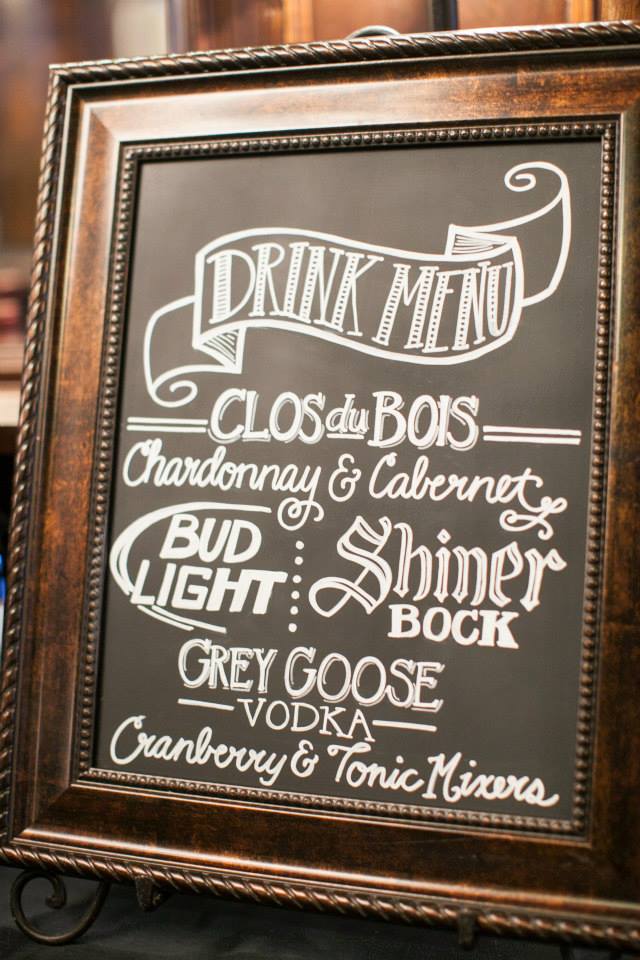 DRINK MENU
CLOS du BOIS
Chardonnay & Cabernet
BUD LIGHT
Shiner BOCK
GREY GOOSE
VODKA
Cranberry & Tonic Mixers